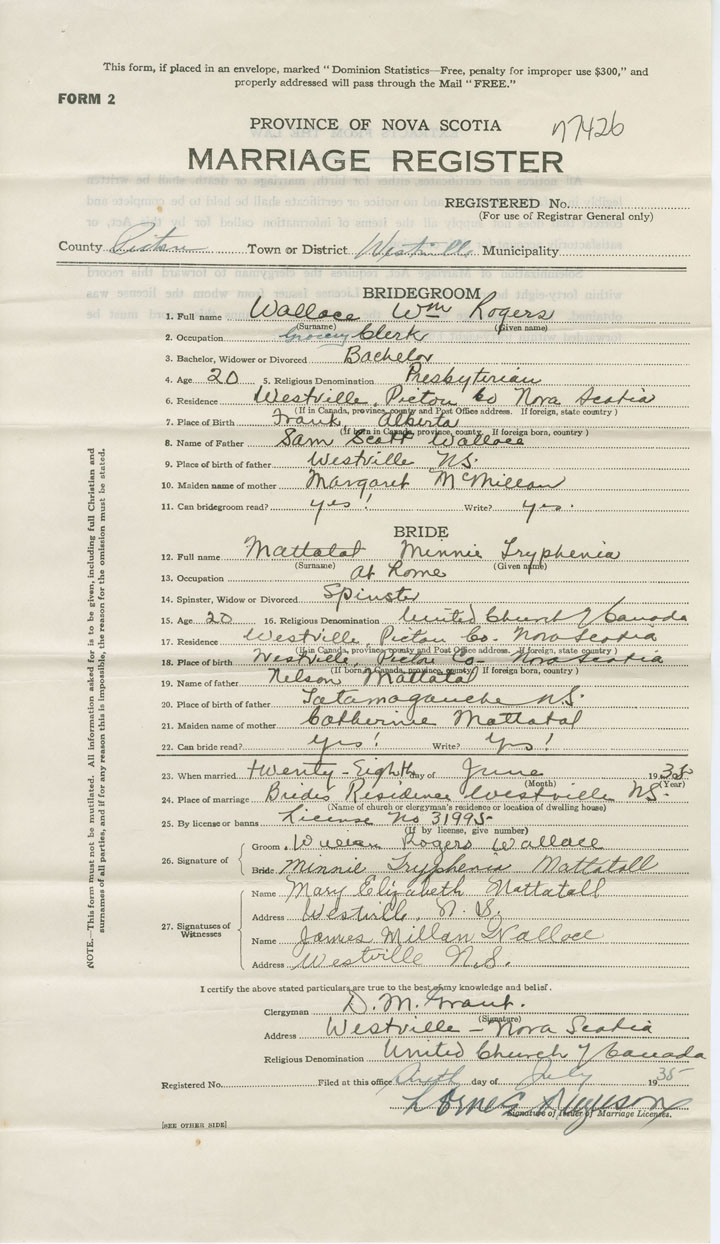 This form, if placed in an envelope, marked "Dominion Statistics—Free, penalty for improper use $300," and
properly addressed will pass through the Mail "FREE."
FORM 2
PROVINCE OF NOVA SCOTIA
77426
MARRIAGE REGISTER
REGISTERED No.
(For use of Registrar General only)
County Pictou Town or District Westville Municipality
BRIDEGROOM
1. Full name Wallace Wm Rogers
(Surname) (Given name)
2. Occupation Grocery Clerk
3. Bachelor, Widower or Divorced Bachelor
4. Age 20 5. Religious Denomination Presbyterian
6. Residence Westville, Pictou Co Nova Scotia
(If in Canada, province, county and Post Office address. If foreign, state country)
7. Place of Birth Frank, Alberta
(If born in Canada, province, county. If foreign born, country)
8. Name of Father Sam Scott Wallace
9. Place of birth of father Westville NS.
10. Maiden name of mother Margaret McMillan
11. Can bridegroom read? yes! Write? yes.
BRIDE
12. Full name Mattatal Minnie Tryphenia
(Surname) (Given name)
13. Occupation At Home
14. Spinster, Widow or Divorced Spinster
15. Age 20 16. Religious Denomination United Church of Canada
17. Residence Westville, Pictou Co- Nova Scotia
(If in Canada, province, county and Post Office address. If foreign, state country)
18. Place of birth Westville, Pictou Co- Nova Scotia
(If born in Canada, province, county. If foreign born, country)
19. Name of father Nelson Mattatal
20. Place of birth of father Tatamagouche N.S.
21. Maiden name of mother Catherine Mattatal
22. Can bride read? yes! Write? yes!
23. When married twenty-Eighth day of June 1935
(Month) (Year)
24. Place of marriage Brides Residence Westville NS.
(Name of church or clergyman's residence or location of dwelling house)
25. By license or banns License No 31995-
(If by license, give number)
26. Signature of
Groom William Rogers Wallace
Bride Minnie Tryphenia Mattatall
27. Signatures of Witnesses
Name Mary Elizabeth Mattatall
Address Westville, N.S.
Name James Millan Wallace
Address Westville N.S.
I certify the above stated particulars are true to the best of my knowledge and belief.
Clergyman D. M. Grant.
(Signature)
Address Westville - Nova Scotia
Religious Denomination United Church of Canada
Registered No. Filed at this office day of July 1935
Signature of Issuer of Marriage Licenses.
[SEE OTHER SIDE]
NOTE.—This form must not be mutilated. All information asked for is to be given, including full Christian and
surnames of all parties, and if for any reason this is impossible, the reason for the omission must be stated.